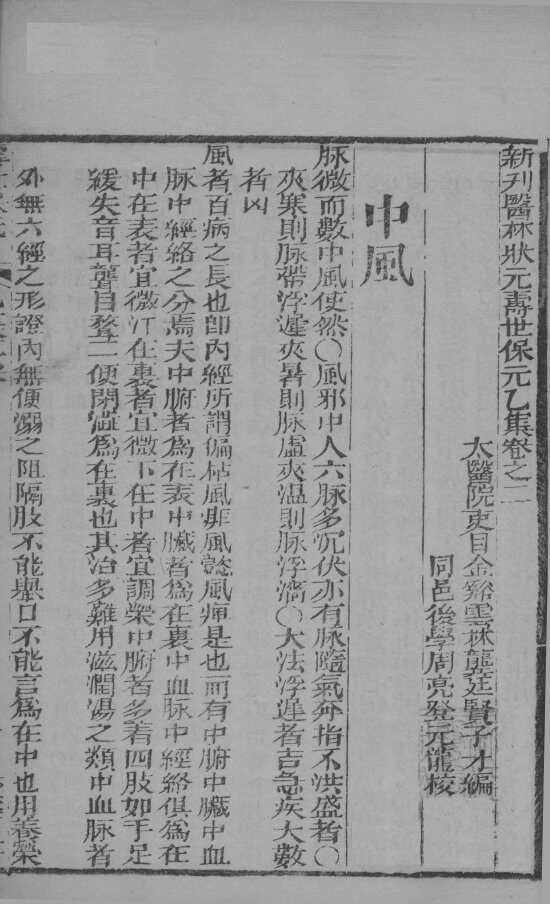 新刊醫林狀元壽世保元乙集卷之二
太醫院吏目金谿雲林龔廷賢子才編
同邑後學周亮登元龍校
中風
脉微而數中風使然○風邪中人六脉多沉伏亦有脉隨氣奔指下洪盛者○
夾寒則脉帶浮遲夾暑則脉虛夾濕則脉浮濇○大法浮遲者吉急疾大數
者凶
風者百病之長也卽內經所謂偏枯風痱風懿風痺是也而有中腑中臟中血
脉中經絡之分焉夫中腑者爲在表中臟者爲在裏中血脉中經絡俱爲在
中在表者宜微汗在裏者宜微下在中者宜調榮中腑者多着四肢如手足
緩失音耳聾目瞀二便閉澁爲在裏也其治多難用滋潤湯之類中血脉者
外無六經之形證內無便溺之阻隔肢不能舉口不能言爲在中也用養榮